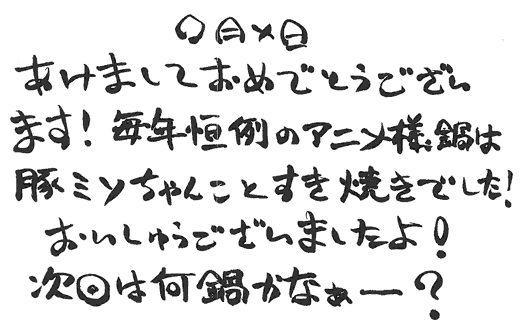 ○月×日
あけましておめでとうござい
ます！毎年恒例のアニソ様鍋は
豚ミソちゃんことすき焼きでした！
おいしゅうございましたよ！
次回は何鍋かなぁー？